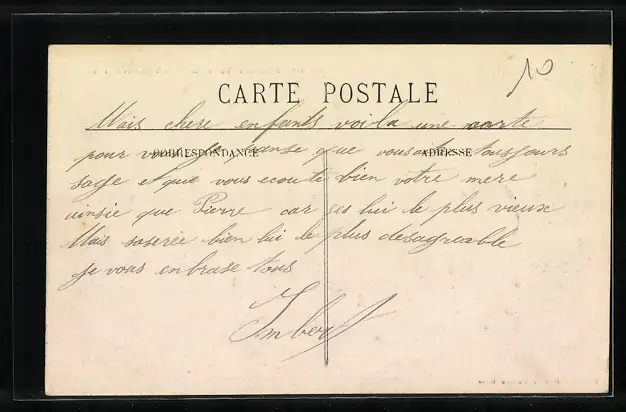 10
CARTE POSTALE
Mais chere enfants voila une carte
CORRESPONDANCE
ADRESSE
pour vous je panse que vous toujours
sage e que vous ecoute bien votre mere
ainsie que Pierre car ces lui le plus vieux
Mais saseree bien lui le plus désagreable
je vous enbrase tous
Imbert